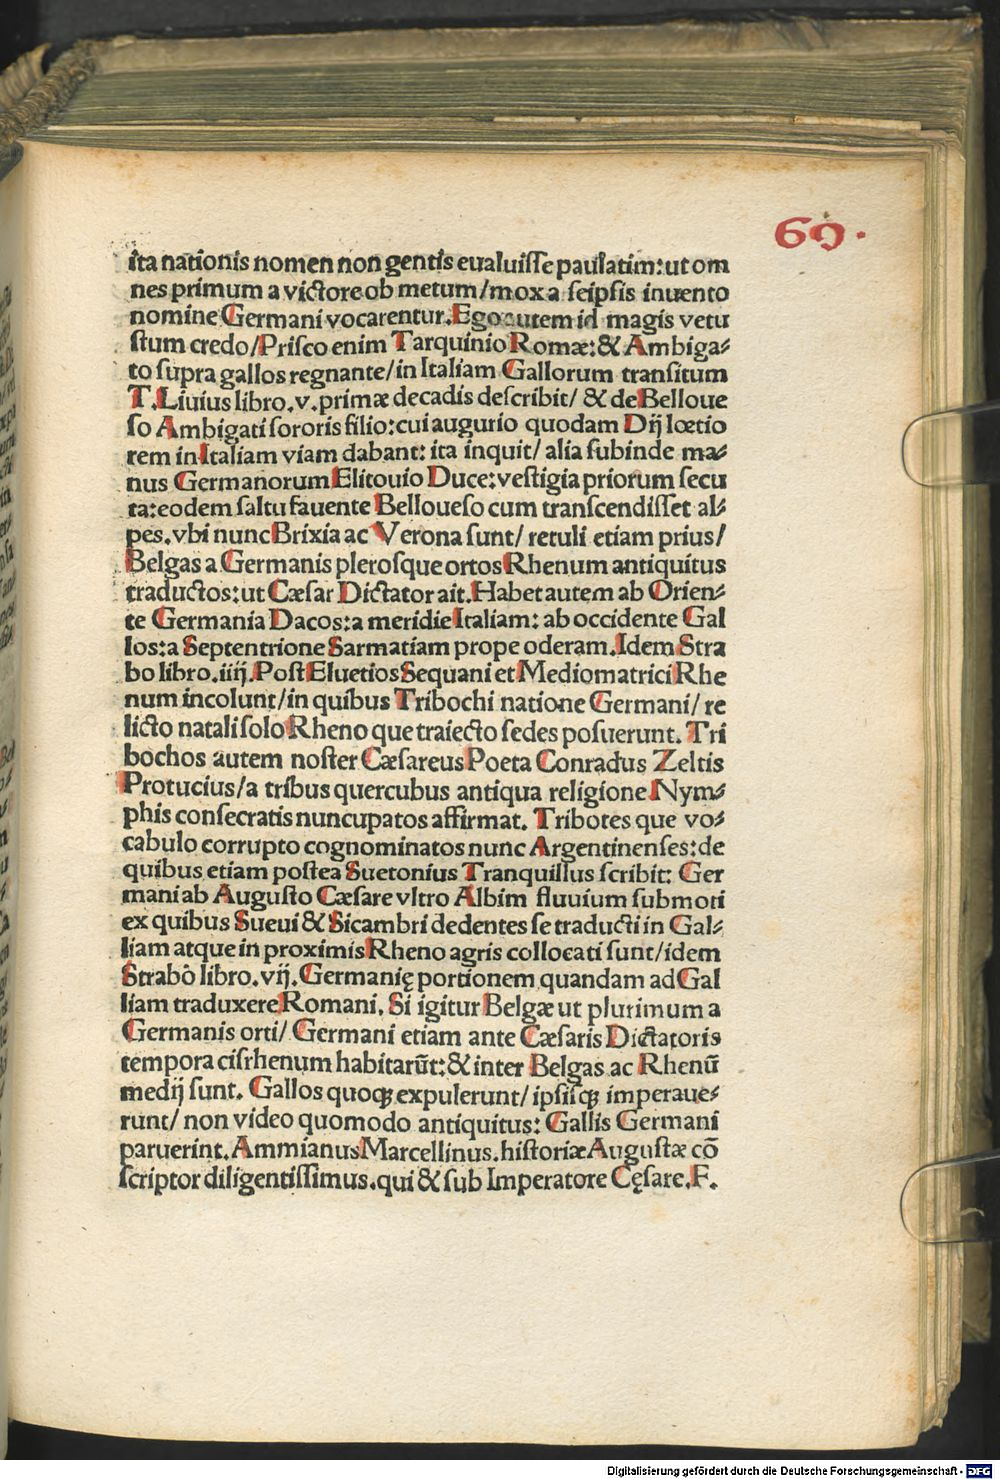 69.
ita nationis nomen non gentis eualuisse paulatim: ut om
nes primum a victore ob metum/ mox a seipsis inuento
nomine Germani vocarentur. Ego autem id magis vetu
stum credo/ Prisco enim Tarquinio Romæ: & Ambiga⸗
to supra gallos regnante/ in Italiam Gallorum transitum
T. Liuius libro .v. primæ decadis describit/ & de Belloue
so Ambigati sororis filio: cui augurio quodam Dij lœtio
rem in Italiam viam dabant: ita inquit/ alia subinde ma⸗
nus Germanorum Elitouio Duce: vestigia priorum secu
ta: eodem saltu fauente Belloueso cum transcendisset al⸗
pes. vbi nunc Brixia ac Verona sunt/ retuli etiam prius/
Belgas a Germanis plerosque ortos Rhenum antiquitus
traductos: ut Cæsar Dictator ait. Habet autem ab Orien⸗
te Germania Dacos: a meridie Italiam: ab occidente Gal
los: a Septentrione Sarmatiam prope oderam. Idem Stra
bo libro .iiij. Post Eluetios Sequani et Mediomatrici Rhe
num incolunt/ in quibus Tribochi natione Germani/ re
licto natali solo Rheno que traiecto sedes posuerunt. Tri
bochos autem noster Cæsareus Poeta Conradus Zeltis
Protucius/ a tribus quercubus antiqua religione Nym⸗
phis consecratis nuncupatos affirmat. Tribotes que vo⸗
cabulo corrupto cognominatos nunc Argentinenses: de
quibus etiam postea Suetonius Tranquillus scribit: Ger
mani ab Augusto Cæsare vltro Albim fluuium submoti
ex quibus Sueui & Sicambri dedentes se traducti in Gal⸗
liam atque in proximis Rheno agris collocati sunt/ idem
Strabo libro .vij. Germanię portionem quandam ad Gal
liam traduxere Romani. Si igitur Belgæ ut plurimum a
Germanis orti/ Germani etiam ante Cæsaris Dictatoris
tempora cisrhenum habitarūt: & inter Belgas ac Rhenū
medij sunt. Gallos quoqꝫ expulerunt/ ipsisqꝫ imperaue⸗
runt/ non video quomodo antiquitus: Gallis Germani
paruerint. Ammianus Marcellinus. historiæ Augustæ cō
scriptor diligentissimus. qui & sub Imperatore Cęsare. F.
Digitalisierung gefördert durch die Deutsche Forschungsgemeinschaft - DFG